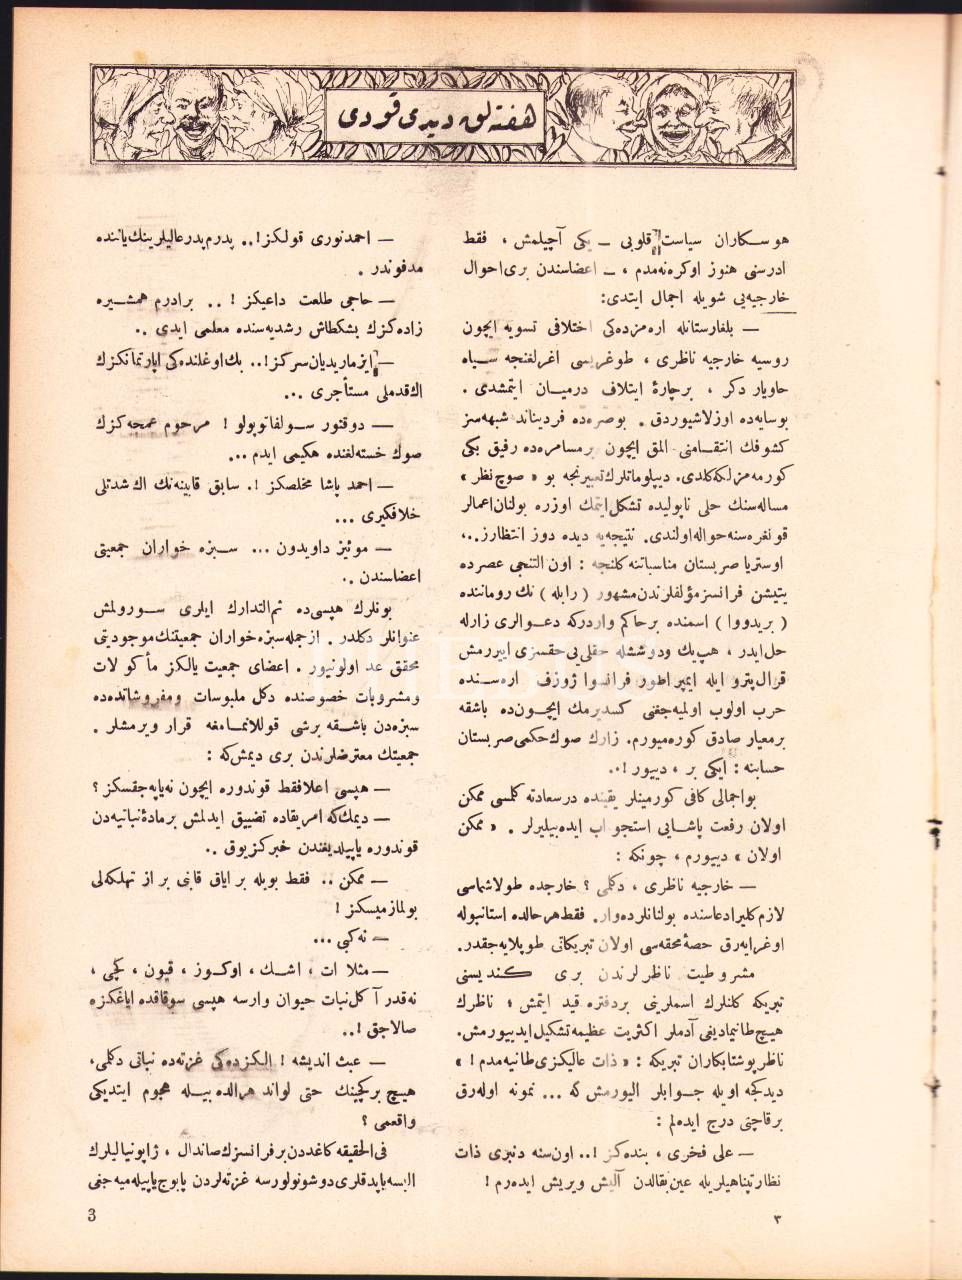 هفته لق ديدى قودى
هوسكاران سياست قلوبى ـ يكى آچيلمش ، فقط
ادرسنى هنوز اوكره نه مدم ، ـ اعضاسندن برى احوال
خارجيه يى شويله اجمال ايتدى:
— بلغارستانله اره مزده كى اختلافى تسويه ايچون
روسيه خارجيه ناظرى ، طوغريسى اغرلغنجه سياه
حاويار دكر ، برچارهٔ ايتلاف درميان ايتمشدى .
بوسايه ده اوزلاشيوردق . بوصره ده فرديناند شبهه سز
كشوفك انتقامنى المق ايچون برمسامره ده رفيق بكى
كورمه مزلكه كلدى. ديپلوماتلرك تعبيرنجه بو « صوچ نظر »
مساله سنك حلى ناپوليده تشكل ايتمك اوزره بولنان اعمالر
قونغره سنه حواله اولندى. نتيجه يه ديده دوز انتظارز..،
اوستريا صربستان مناسباتنه كلنجه : اون التنجى عصرده
يتيشن فرانسز مؤلفلرندن مشهور ( رابله ) نك روماننده
( بريدووا ) اسمنده برحاكم واردركه دعوالرى زارله
حل ايدر ، هپ يك ودوششله حقلى يى حقسزى اييررمش
قرال پترو ايله ايمپراطور فرانسوا ژوزف اره سنده
حرب اولوب اولميه جغنى كسديرمك ايچون ده باشقه
برمعيار صادق كوره ميورم. زارك صوك حكمى صربستان
حسابنه : ايكى بر ، ديیور !..
بو اجمالى كافى كورمينلر يقينده درسعادته كلمسى ممكن
اولان رفعت پاشايى استجواب ايده بيليرلر . « ممكن
اولان » دييورم ، چونكه :
— خارجيه ناظرى ، دكلمى ؟ خارجده طولاشماسى
لازم كلير ادعاسنده بولنانلرده وار. فقط هر حالده استانبوله
اوغرايه رق حصهٔ محقه سى اولان تبريكاتى طوپلايه جقدر.
مشروطيت ناظرلرندن برى كنديسنى
تبريكه كلنلرك اسملرينى بردفتره قيد ايتمش ؛ ناظرك
هيچ طانيماديغى آدملر اكثريت عظيمه تشكيل ايدييورمش.
ناظر پوشتابكاران تبريكه : « ذات عاليكزى طانيه مدم ! »
ديدكجه اويله جوابلر اليورمش كه ... نمونه اوله رق
برقاچنى درج ايده لم :
— على فخرى ، بنده كز !.. اون سنه دنبرى ذات
نظارتپناهيلريله عين بقالدن آليش ويريش ايده رم !
— احمد نورى قولكز !.. پدرم پدر عاليلرينك ياننده
مدفوندر .
— حاجى طلعت داعيكز ! .. برادرم همشيره
زاده كزك بشكطاش رشديه سنده معلمى ايدى ..
— ايزماريديان سركز !.. بك اوغلنده كى اپارتمانكزك
اك قدملى مستأجرى ...
— دوقتور سولفاتوپولو ! مرحوم عمجه كزك
صوك خسته لغنده هكيمى ايدم ...
— احمد پاشا مخلصكز !. سابق قابينه نك اك شدتلى
خلافكيرى ...
— موئيز داويدون ... سبزه خواران جمعيتى
اعضاسندن ..
بونلرك هپسى ده نم التدارك ايلرى سورولمش
عنوانلر دكلدر . ازجمله سبزه خواران جمعيتنك موجوديتى
محقق عد اولونيور . اعضاى جمعيت يالكز مأكولات
ومشروبات خصوصنده دكل ملبوسات ومفروشاتده ده
سبزه دن باشقه برشى قوللانمامغه قرار ويرمشلر .
جمعيتك معترضلرندن برى ديمش كه :
— هپسى اعلا فقط قوندوره ايچون نه ياپه جقسكز ؟
— ديمك كه امريقاده تضييق ايدلمش برمادهٔ نباتيه دن
قوندوره ياپيلديغندن خبركز يوق ..
— ممكن .. فقط بويله بر اياق قابنى بر از تهلكه لى
بولمازميسكز !
— نه كبى ...
— مثلا ات ، اشك ، اوكوز ، قيون ، كچى ،
نه قدر آكل نبات حيوان وارسه هپسى سوقاقده اياغكزه
صالاجق !..
— عبث انديشه ! الكزده كى غزته ده نباتى دكلمى،
هيچ بر كچينك حتى لواند هرالده بيله هجوم ايتديكى
واقعمى ؟
فى الحقيقه كاغددن برفرانسزك صاندال ، ژاپونيالیلرك
البسه ياپدقلرى دوشونولورسه غزته لردن پابوج ياپيله ميه جغنى
3
٣